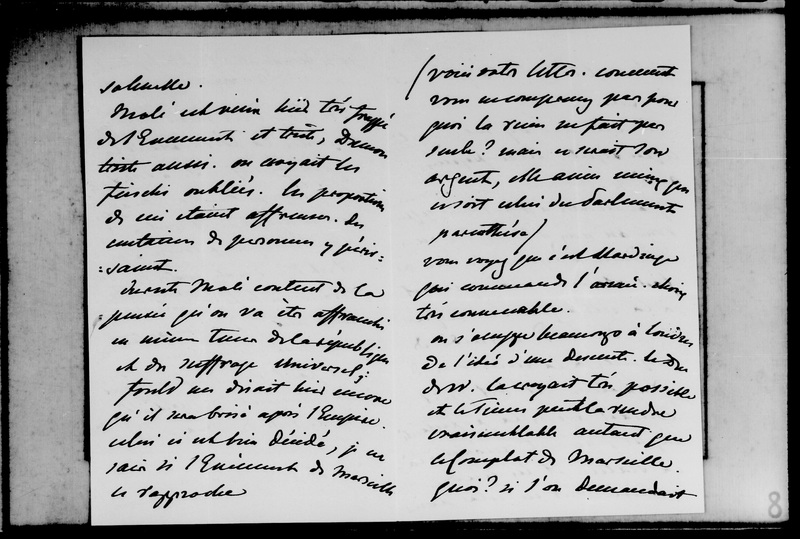 solennelle.
Molé est venu hier très frappé
de l'Evénement et triste, Dumon
triste aussi. on croyait les
fieschi oubliés. les proportions
de ceci étaient affreuses. des
centaines de personnes y péris-
-saient.
ensuite Molé content de la
pensée qu'on va être affranchi
en même temps de la république
et du suffrage universel;
fould me disait hier encore
qu'il sera brisé après l'Empire.
celui ci est bien décidé, je ne
sais si l'Evénement de Marseille
le rapproche
(voici votre lettre. comment
vous ne comprenez pas pour
quoi la reine ne fait pas
seule? mais ce serait son
argent, elle aime mieux que
ce soit celui du Parlement
parenthèse)
vous voyez que c'est Hardinge
qui commande l'armée. choix
très convenable.
on s'occupe beaucoup à Londres
de l'idée d'une descente. le Duc
de W. la croyait très possible
et le Times peut la rendre
vraisemblable autant que
le Complot de Marseille.
quoi? si l'on demandait
8